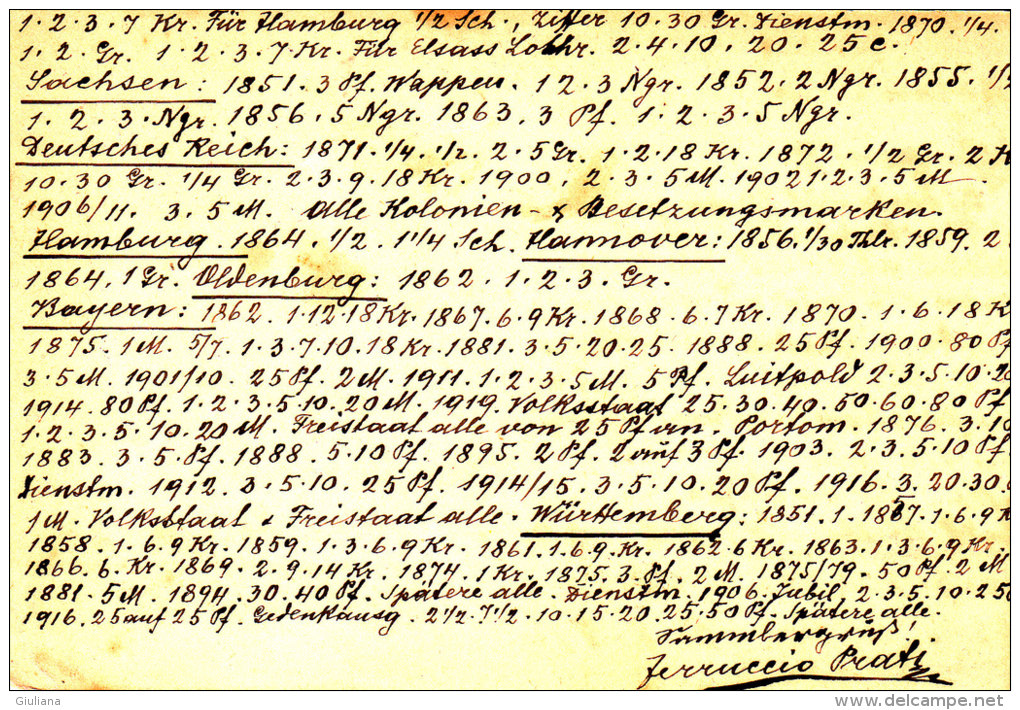 1. 2. 3. 7 Kr. Für Hamburg 1/2 Sch., Ziffer 10. 30 Gr. Dienstm. 1870. 1/4.
1. 2. Gr. 1. 2. 3. 7. Kr. Für Elsass Lothr. 2. 4. 10. 20. 25 c.
Sachsen: 1851. 3 Pf. Wappen. 1 2. 3 Ngr. 1852. 2 Ngr. 1855. 1/2
1. 2. 3. Ngr. 1856. 5 Ngr. 1863. 3 Pf. 1. 2. 3. 5 Ngr.
Deutsches Reich: 1871. 1/4. 1/2. 2. 5 Gr. 1. 2. 18 Kr. 1872. 1/2 Gr. 2 K
10. 30 Gr. 1/4 Gr. 2. 3. 9. 18 Kr. 1900. 2. 3. 5 M. 1902 1. 2. 3. 5 M.
1906/11. 3. 5 M. Alle Kolonien- & Besetzungsmarken.
Hamburg. 1864. 1/2. 1 1/4 Sch. Hannover: 1856. 1/30 Thlr. 1859. 2
1864. 1 Gr. Oldenburg: 1862. 1. 2. 3. Gr.
Bayern: 1862. 1. 12. 18 Kr. 1867. 6. 9 Kr. 1868. 6. 7 Kr. 1870. 1. 6. 18 K
1875. 1 M. 5/7. 1. 3. 7. 10. 18 Kr. 1881. 3. 5. 20. 25. 1888. 25 Pf. 1900. 80 Pf
3. 5 M. 1901/10. 25 Pf. 2 M. 1911. 1. 2. 3. 5 M. 5 Pf. Luitpold 2. 3. 5. 10. 20
1914. 80 Pf. 1. 2. 3. 5. 10. 20 M. 1919. Volksstaat 25. 30. 40. 50. 60. 80 Pf
1. 2. 3. 5. 10. 20 M. Freistaat alle von 25 Pf an. Portom. 1876. 3. 10
1883. 3. 5. Pf. 1888. 5. 10 Pf. 1895. 2 Pf. 2 auf 3 Pf. 1903. 2. 3. 5. 10 Pf.
Dienstm. 1912. 3. 5. 10. 25 Pf. 1914/15. 3. 5. 10. 20 Pf. 1916. 3. 20. 30.
1 M. Volksstaat & Freistaat alle. Württemberg: 1851. 1. 1857. 1. 6. 9 K
1858. 1. 6. 9 Kr. 1859. 1. 3. 6. 9 Kr. 1861. 1. 6. 9. Kr. 1862. 6 Kr. 1863. 1. 3. 6. 9 Kr.
1866. 6. Kr. 1869. 2. 9. 14 Kr. 1874. 1 Kr. 1875. 3. Pf. 2 M. 1875/79. 50 Pf. 2 M
1881. 5 M. 1894. 30. 40 Pf. Spätere alle. Dienstm. 1906. Jubil. 2. 3. 5. 10. 25
1916. 25 auf 25 Pf. Gedenkausg. 2 1/2. 7 1/2. 10. 15. 20. 25. 50 Pf. Spätere alle.
Sammlergruß!
Ferruccio Prati
Giuliana
delcampe.net